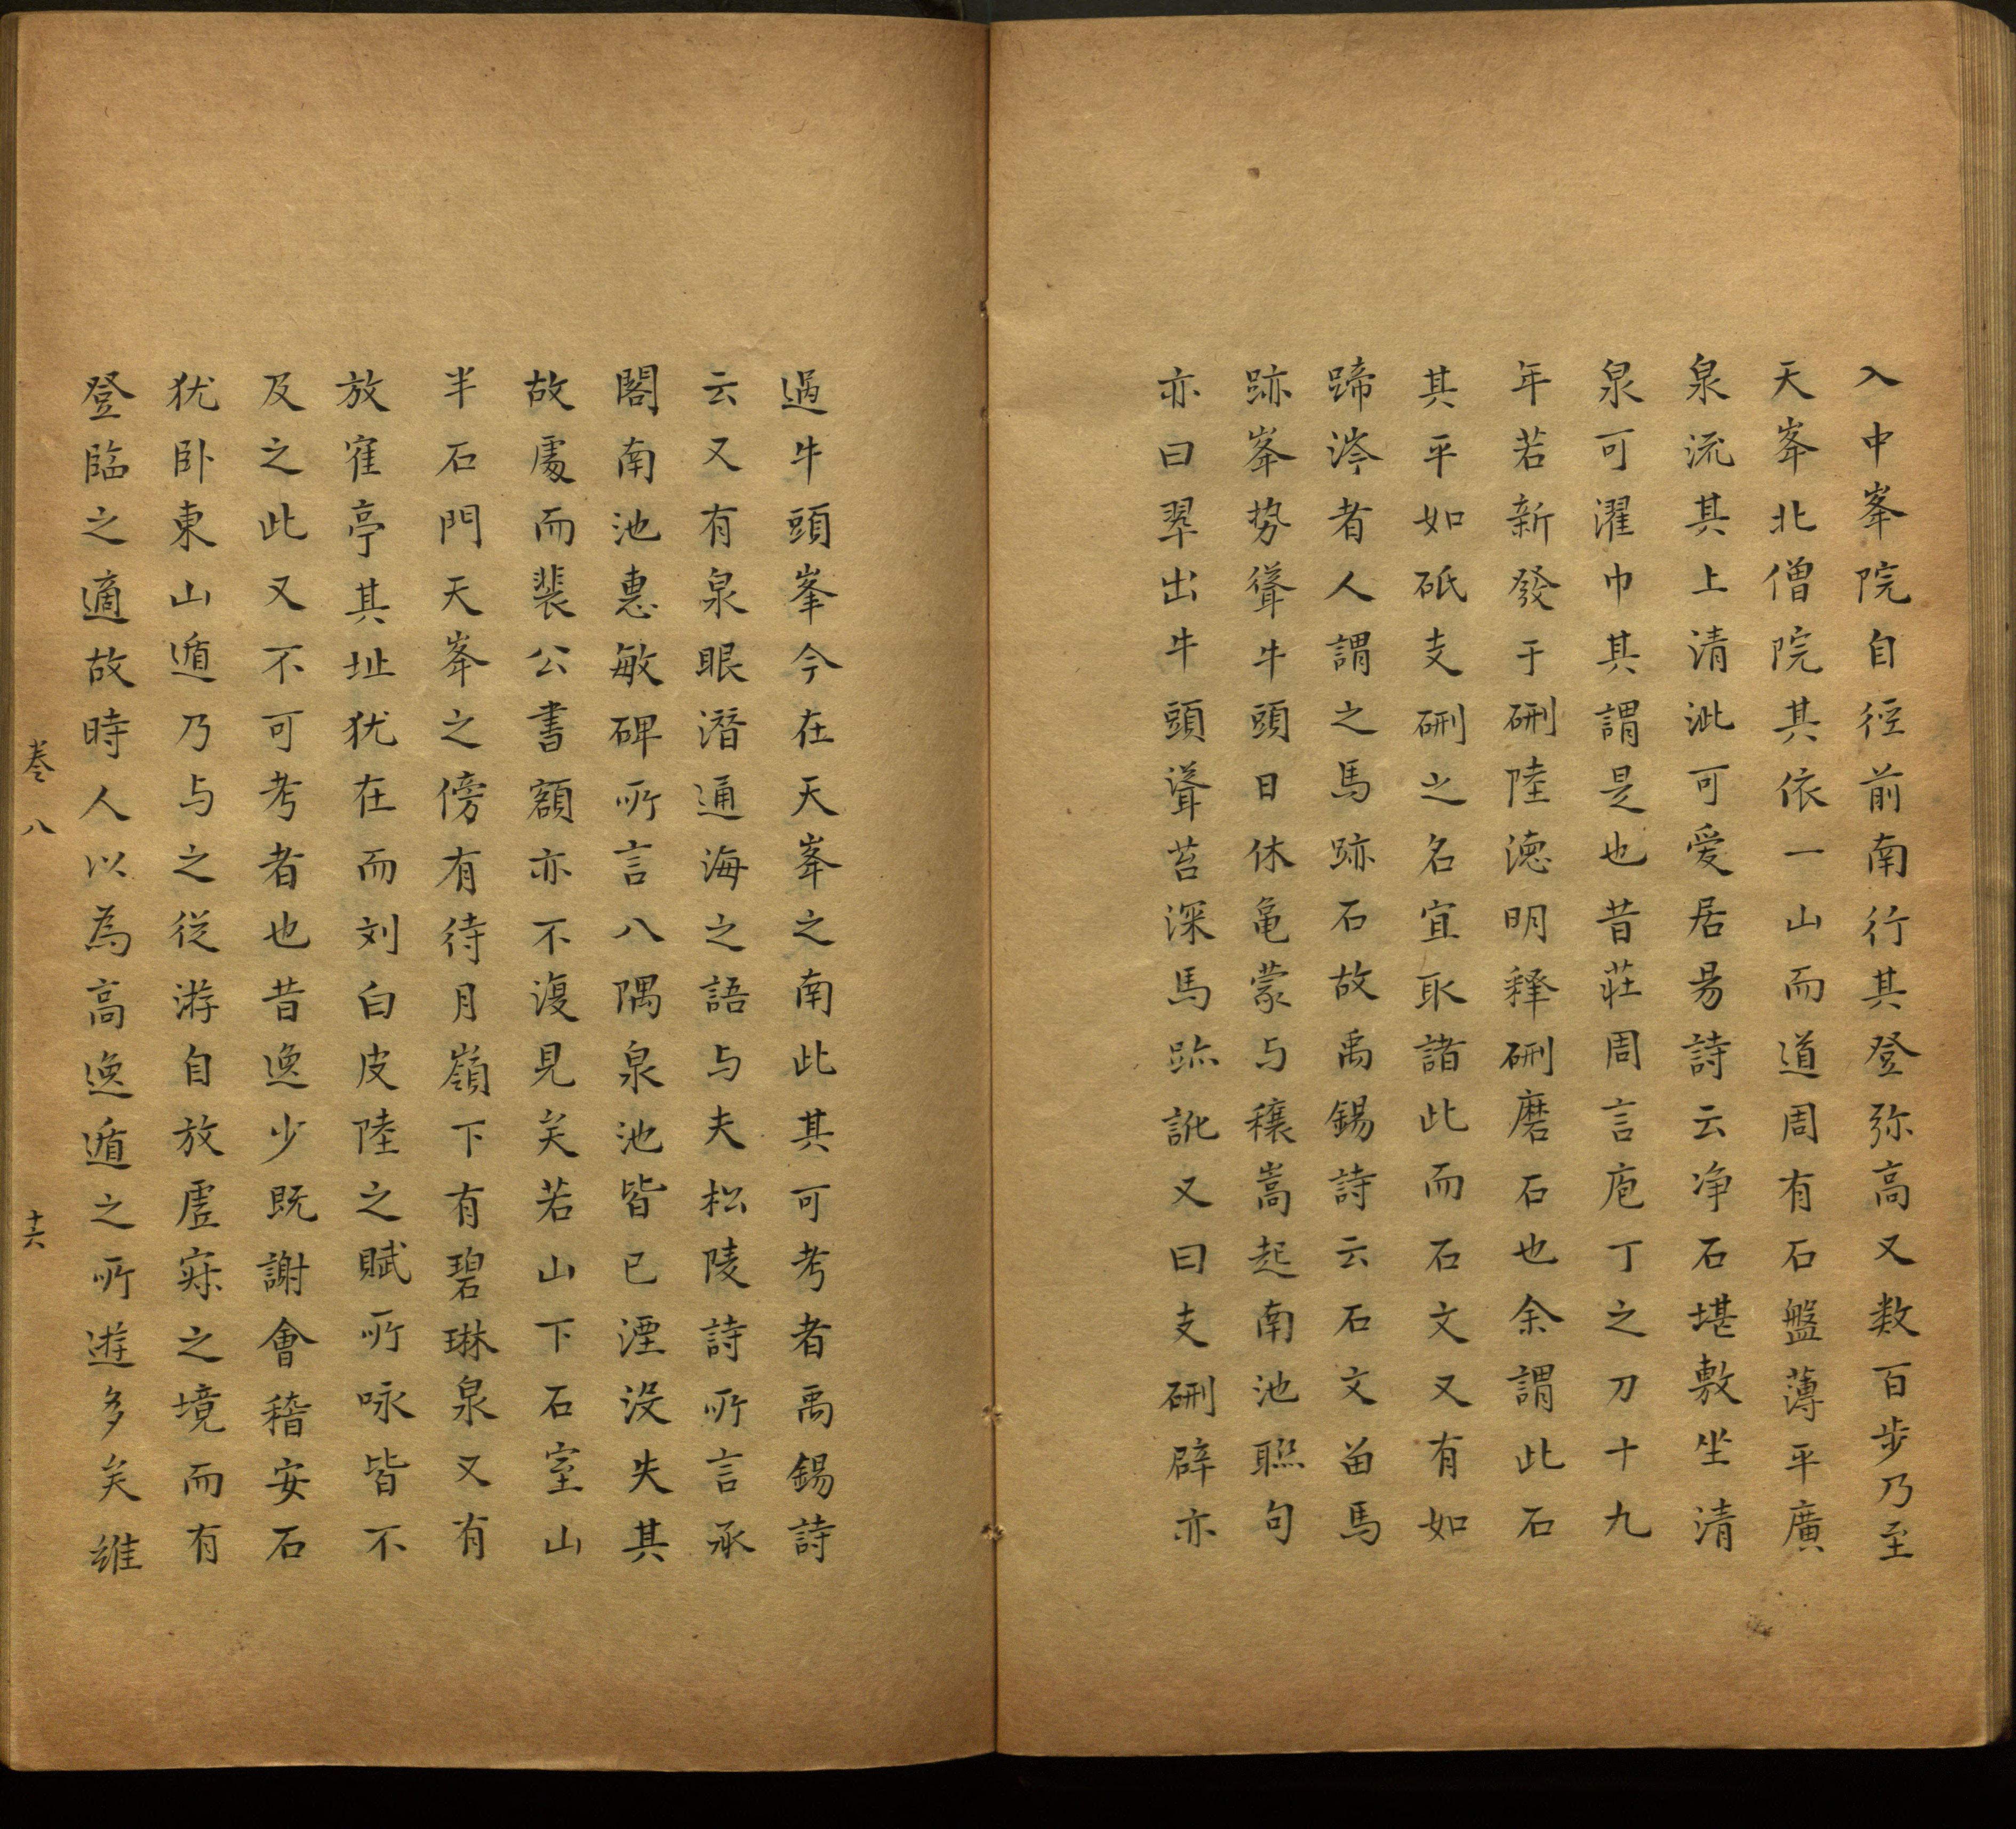 入中峯院自徑前南行其登弥高又数百步乃至
天峯北僧院其依一山而道周有石盤薄平廣
泉流其上清泚可爱居昜詩云净石堪敷坐清
泉可濯巾其謂是也昔莊周言庖丁之刀十九
年若新發于硎陸德明释硎磨石也余謂此石
其平如砥支硎之名宜取諸此而石文又有如
蹄涔者人謂之馬跡石故禹錫詩云石文畱馬
跡峯势聳牛頭日休亀蒙与穰嵩起南池聮句
亦曰翠出牛頭聳苔深馬跡訛又曰支硎辟亦
過牛頭峯今在天峯之南此其可考者禹錫詩
云又有泉眼潛通海之語与夫松陵詩所言承
閣南池惠敏碑所言八隅泉池皆已湮没失其
故處而裴公書額亦不復見矣若山下石室山
半石門天峯之傍有待月嶺下有碧琳泉又有
放寉亭其址犹在而刘白皮陸之賦所咏皆不
及之此又不可考者也昔逸少既謝會稽安石
犹卧東山遁乃与之從游自放虗寂之境而有
登臨之適故時人以為高逸遁之所逰多矣維
卷八
十六